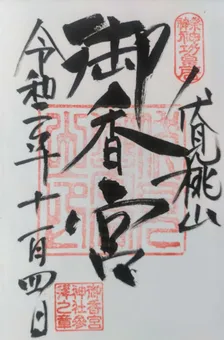 伏見桃山
御香宮
令和二年十一月四日
御香宮
神社参
拝之章